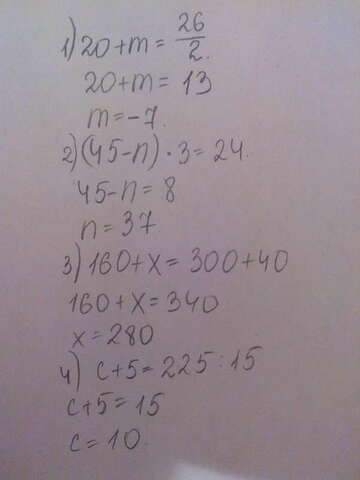 1) 20+m = 26/2.
20+m = 13
m = -7.
2) (45-n) · 3 = 24.
45-n = 8
n = 37
3) 160+x = 300+40
160+x = 340
x = 280
4) c+5 = 225 : 15
c+5 = 15
c = 10.